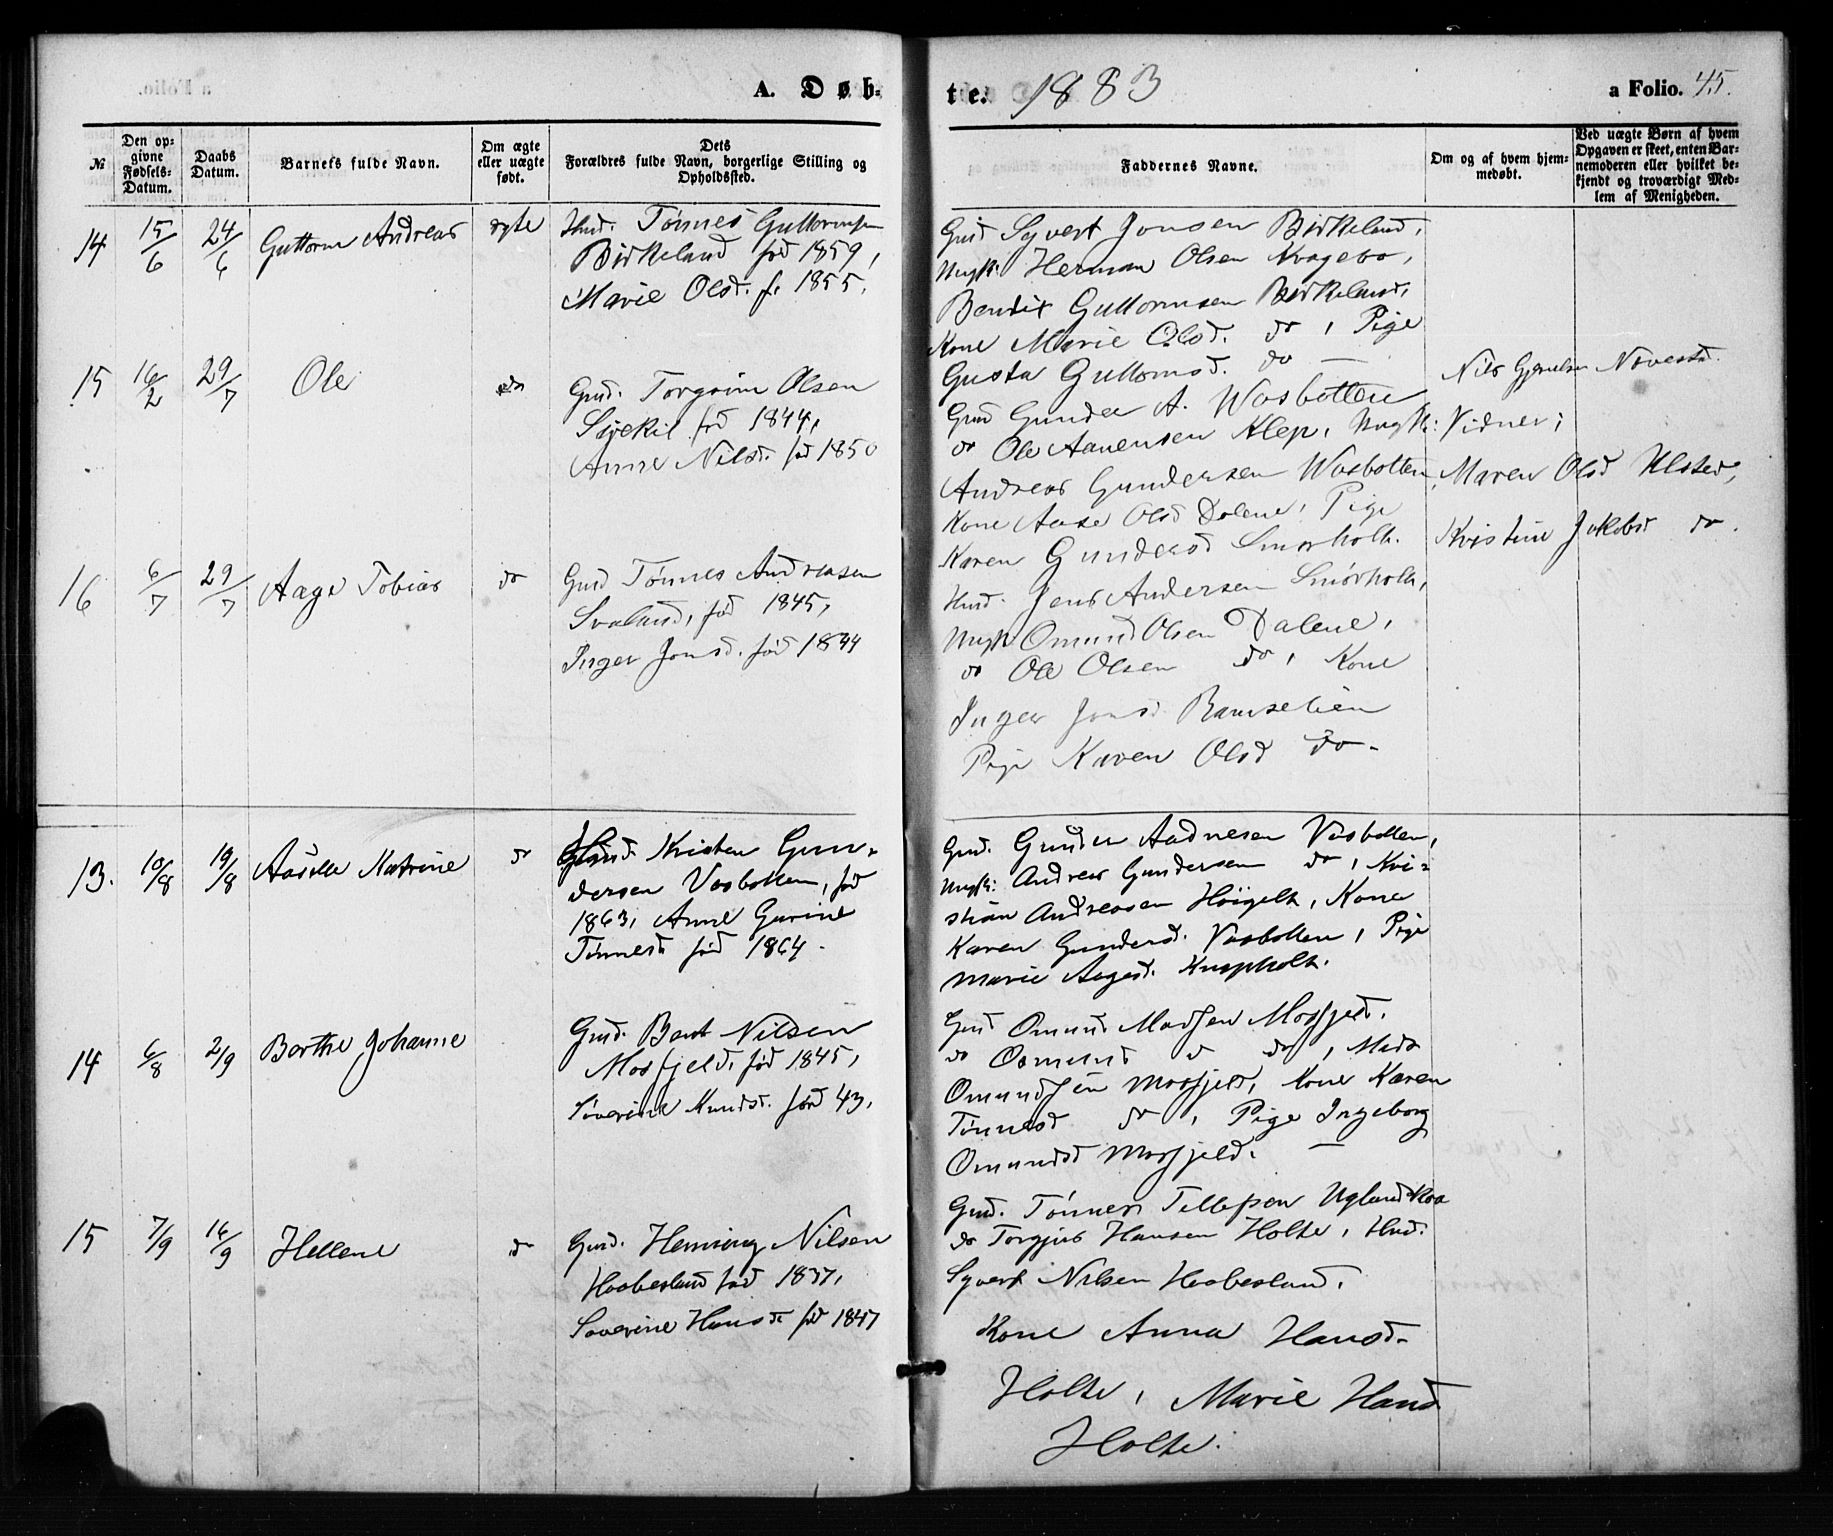 A. Døb-
te. 1883
a Folio. 45.
№
Den op-
givne
Fødsels-
Datum.
Daabs
Datum.
Barnets fulde Navn.
Om ægte
eller uægte
født.
Dets
Forældres fulde Navn, borgerlige Stilling og
Opholdssted.
Faddernes Navne.
Om og af hvem hjem-
medøbt.
Ved uægte Børn af hvem
Opgaven er skeet, enten Bar-
nemoderen eller hvilket be-
kjendt og troværdigt Med-
lem af Menigheden.
14 15/6 24/6 Guttorm Andreas ægte
Husd. Tønnes Guttormsen
Birkeland fød 1859,
Marie Olsd. f. 1855.
Gud Syvert Jonsen Birkeland,
Ungk: Herman Olsen Kvagebo,
Bendix Guttormsen Birkeland,
Kone Marie Olsd. do, Pige
Gusta Guttormsd. do —
15 16/2 29/7 Ole do
Grd. Torgrim Olsen
fød 1844,
Anne Nilsd. fød 1850
Grd Gunder A. Vasbotten
do Ole Aanensen Klep, Ungk:
Andreas Gundersen Vasbotten,
Kone Aase Olsd Dalene, Pige
Karen Gundersd Smørholt.
Nils Novestad.
Vidner:
Maren Olsd Ulsted,
Kristine Jakobsd do.
16 6/7 29/7 Aage Tobias do
Grd Tønnes Andreasen
Svaland, fød 1845,
Inger Jonsd. fød 1844
Husd. Jens Andersen Smørholt,
Ungk Omund Olsen Dalene,
do Ole Olsen do, Kone
Inger Jonsd Ramselien
Pige Karen Olsd do.
13. 10/8 19/8 Aasille Katrine do
Husd. Kristen Gun-
dersen Vasbotten, fød
1863, Anne Gurine
Tønnesd fød 1864.
Grd. Gunder Aadnesen Vasbotten,
Ungk: Andreas Gundersen do, Kri-
stian Andreasen Høigelt, Kone
Karen Gundersd. Vasbotten, Pige
Marie Aagesd. Knapholt.
14 6/8 2/9 Berthe Johanne
Grd. Bent Nilsen
Mosfjeld, fød 1845,
Severine Knudsd. fød 43.
Grd Omund Madsen Mosfjeld.
do Osmund do do, Mads
Omundsen Mosfjeld, Kone Karen
Tønnesd do, Pige Ingeborg
Omundsd Mosfjeld. —
15 7/9 16/9 Hellene do
Grd. Henning Nilsen
Haabesland fød 1837,
Severine Hansd. fød 1847
Grd. Tønnes Tellefsen Ugland
do Torgjus Hansen Holte, Husd.
Syvert Nilsen Haabesland,
Kone Anna Hansd.
Holte, Marie Hansd
Holte.